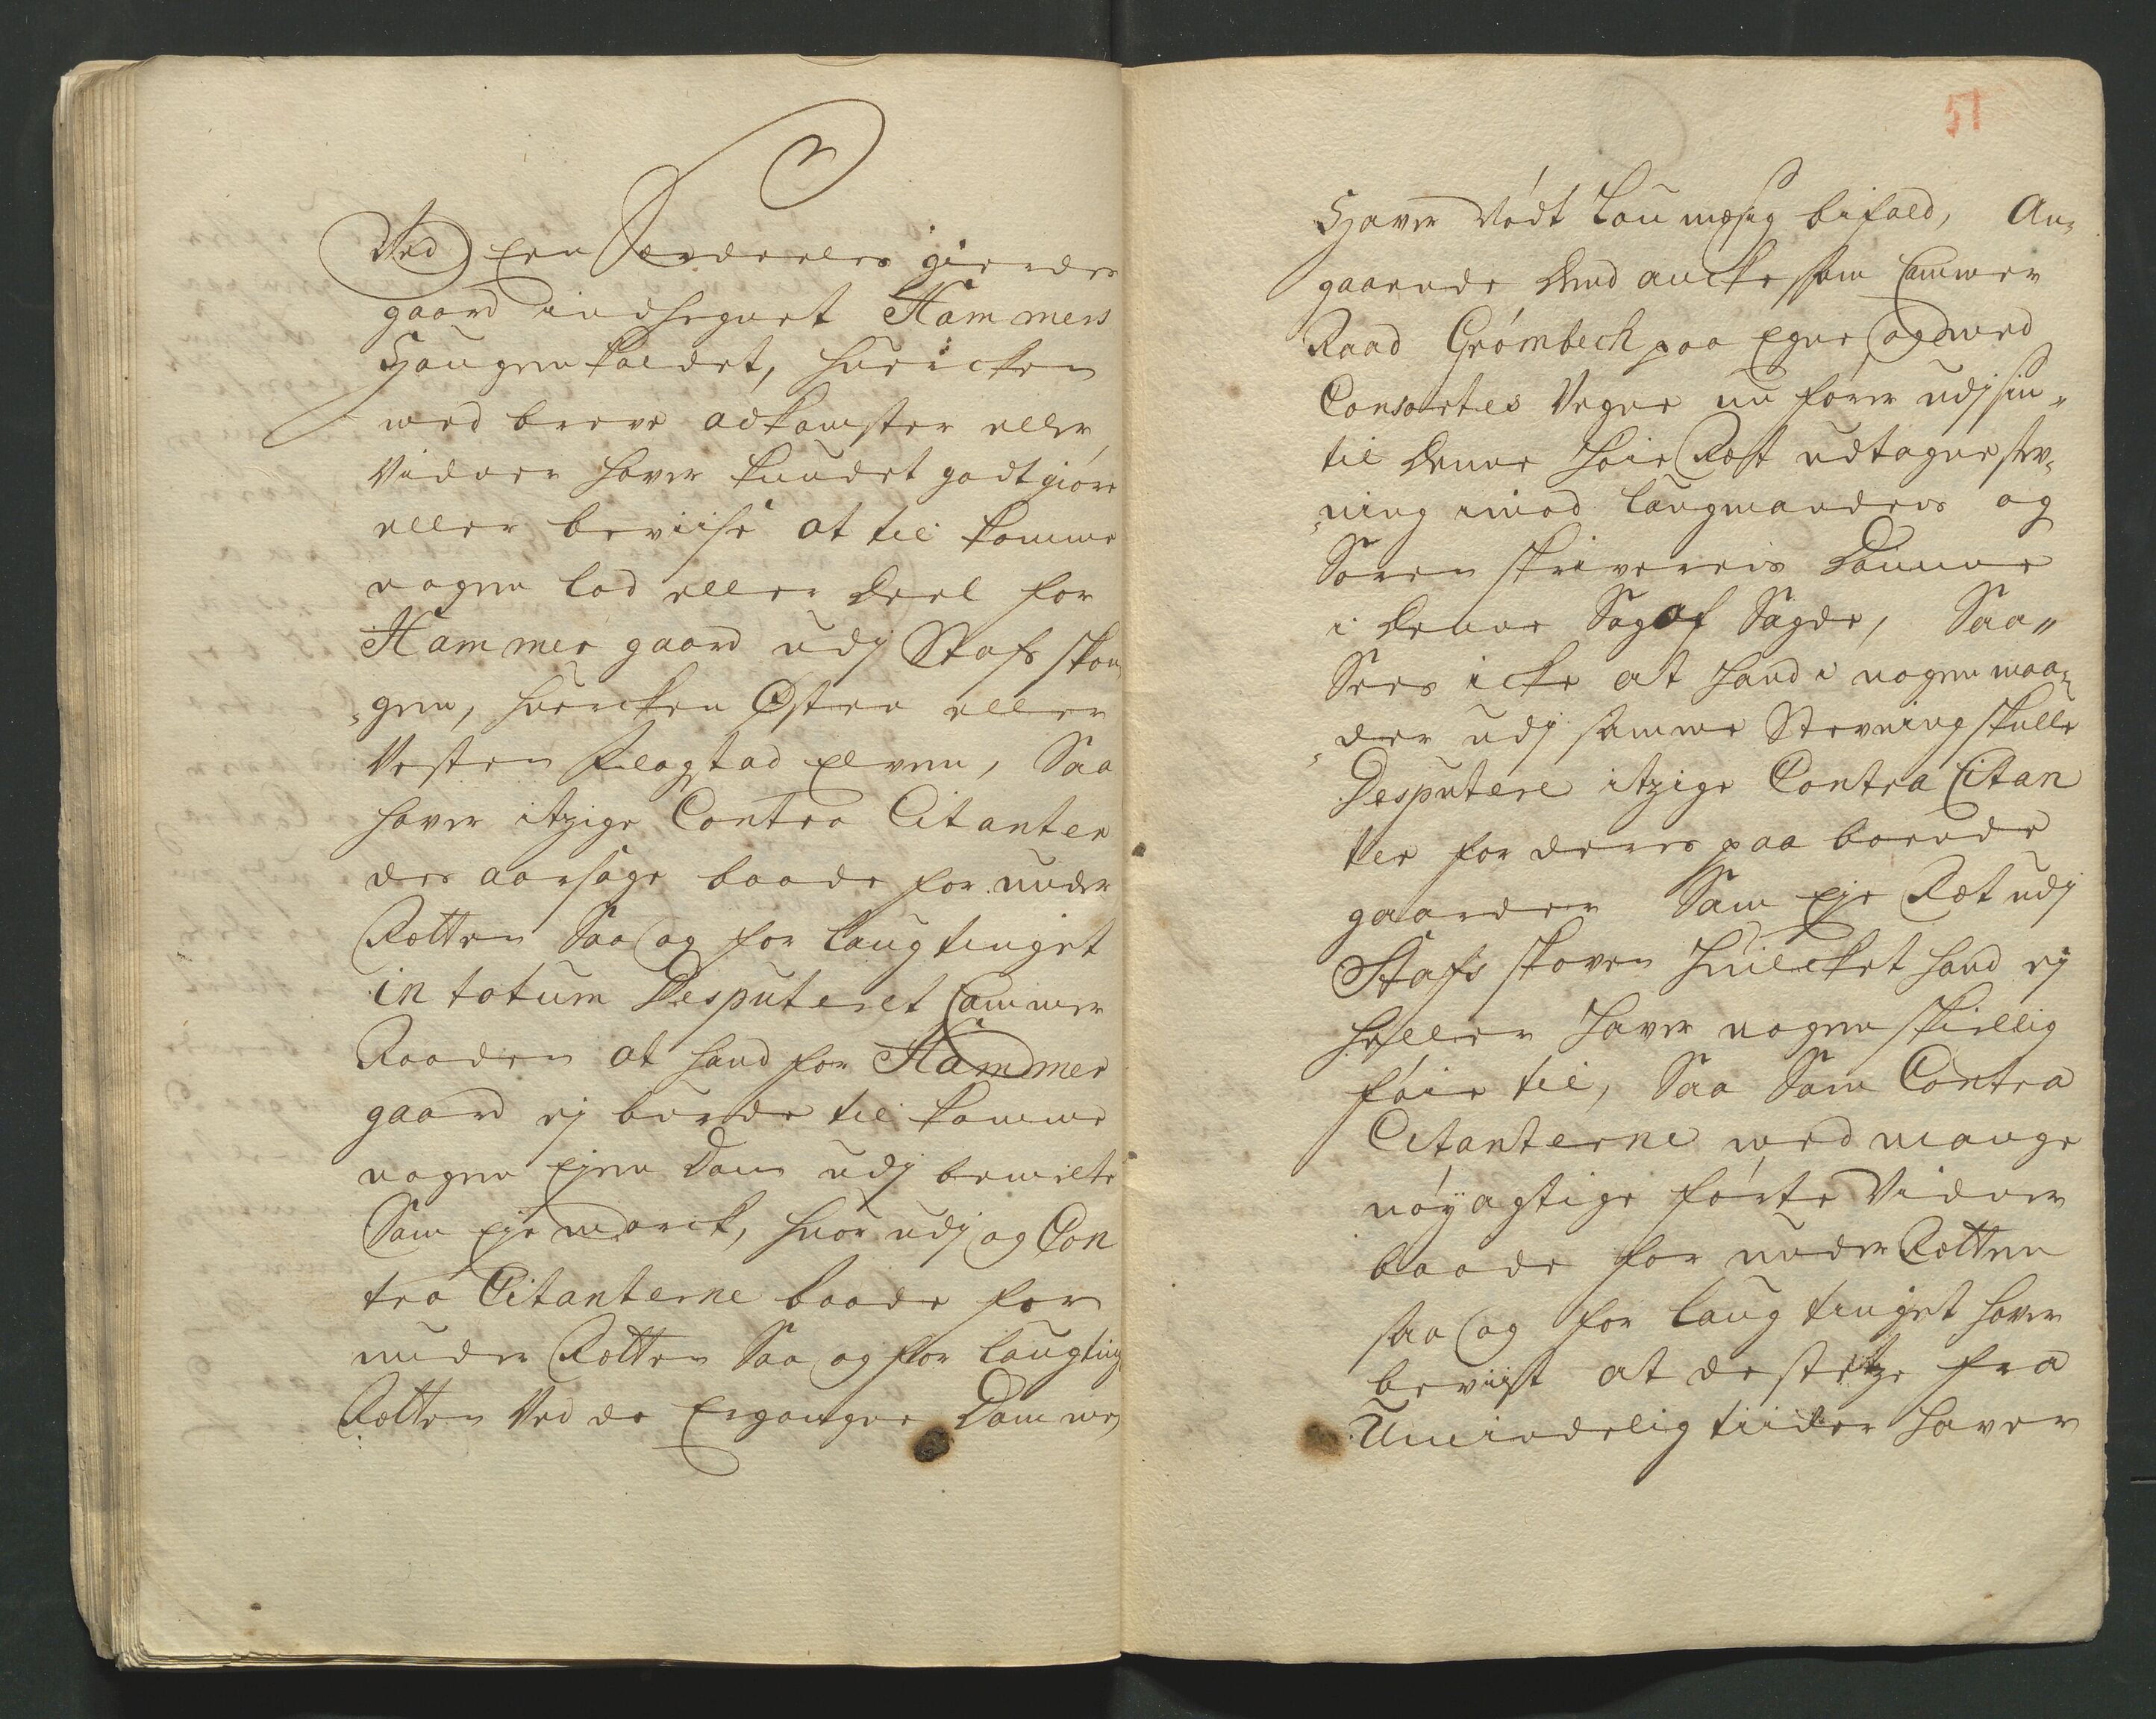 Ved een Særdeeles gierdes
gaard indhegnet Hammers
Haugen kaldet, huercken
med breve adkomster eller
Vidner haver kundet godtgiøre
eller beviise at til komme
nogen lod eller Deel for
Hammer gaard udj Stafs skou,
„gen, huercken Østen eller
Vesten Flogstad Elven, Saa
haver itzige Contra Citanter
des aarsage baade for under
Retten Saa og for laugtinget
in totum Desputeret Cammer
Raaden at hand for Hammer
gaard ej burde til komme
nogen Ejen dom udj bemelte
Sam Eje marck, huor udj og Con
tra Citanterne baade for
under Retten Saa og for laugting
Retten Ved de Ergangne Domme,
51
Haver Nødt Lou mesig bifald, An„
gaaende dend ancke som Cammer
Raad Grømbech paa Egne og med
Consortes Vegne nu fører udj sin„
til denne Høie Ræt udtagne stev„
„ning imod laugmandens og
Soren skriverens Domme
i denne Sag af Sagde, Saa„
Sees icke at hand i nogen maa„
„der udj samme Stevning skulle
Desputere itzige Contra Citan
ter for deres paa boende
gaarder Sam Eje Ræt udj
Stafs skoven Huilcket hand ej
heller haver nogen skiellig
føie til, Saa Som Contra
Citanterne med mange
nøyagtigeførte Vidner
baade for under Retten
saa og for laug tinget haver
beviist at de stetze fra
Umindelig tiider haver